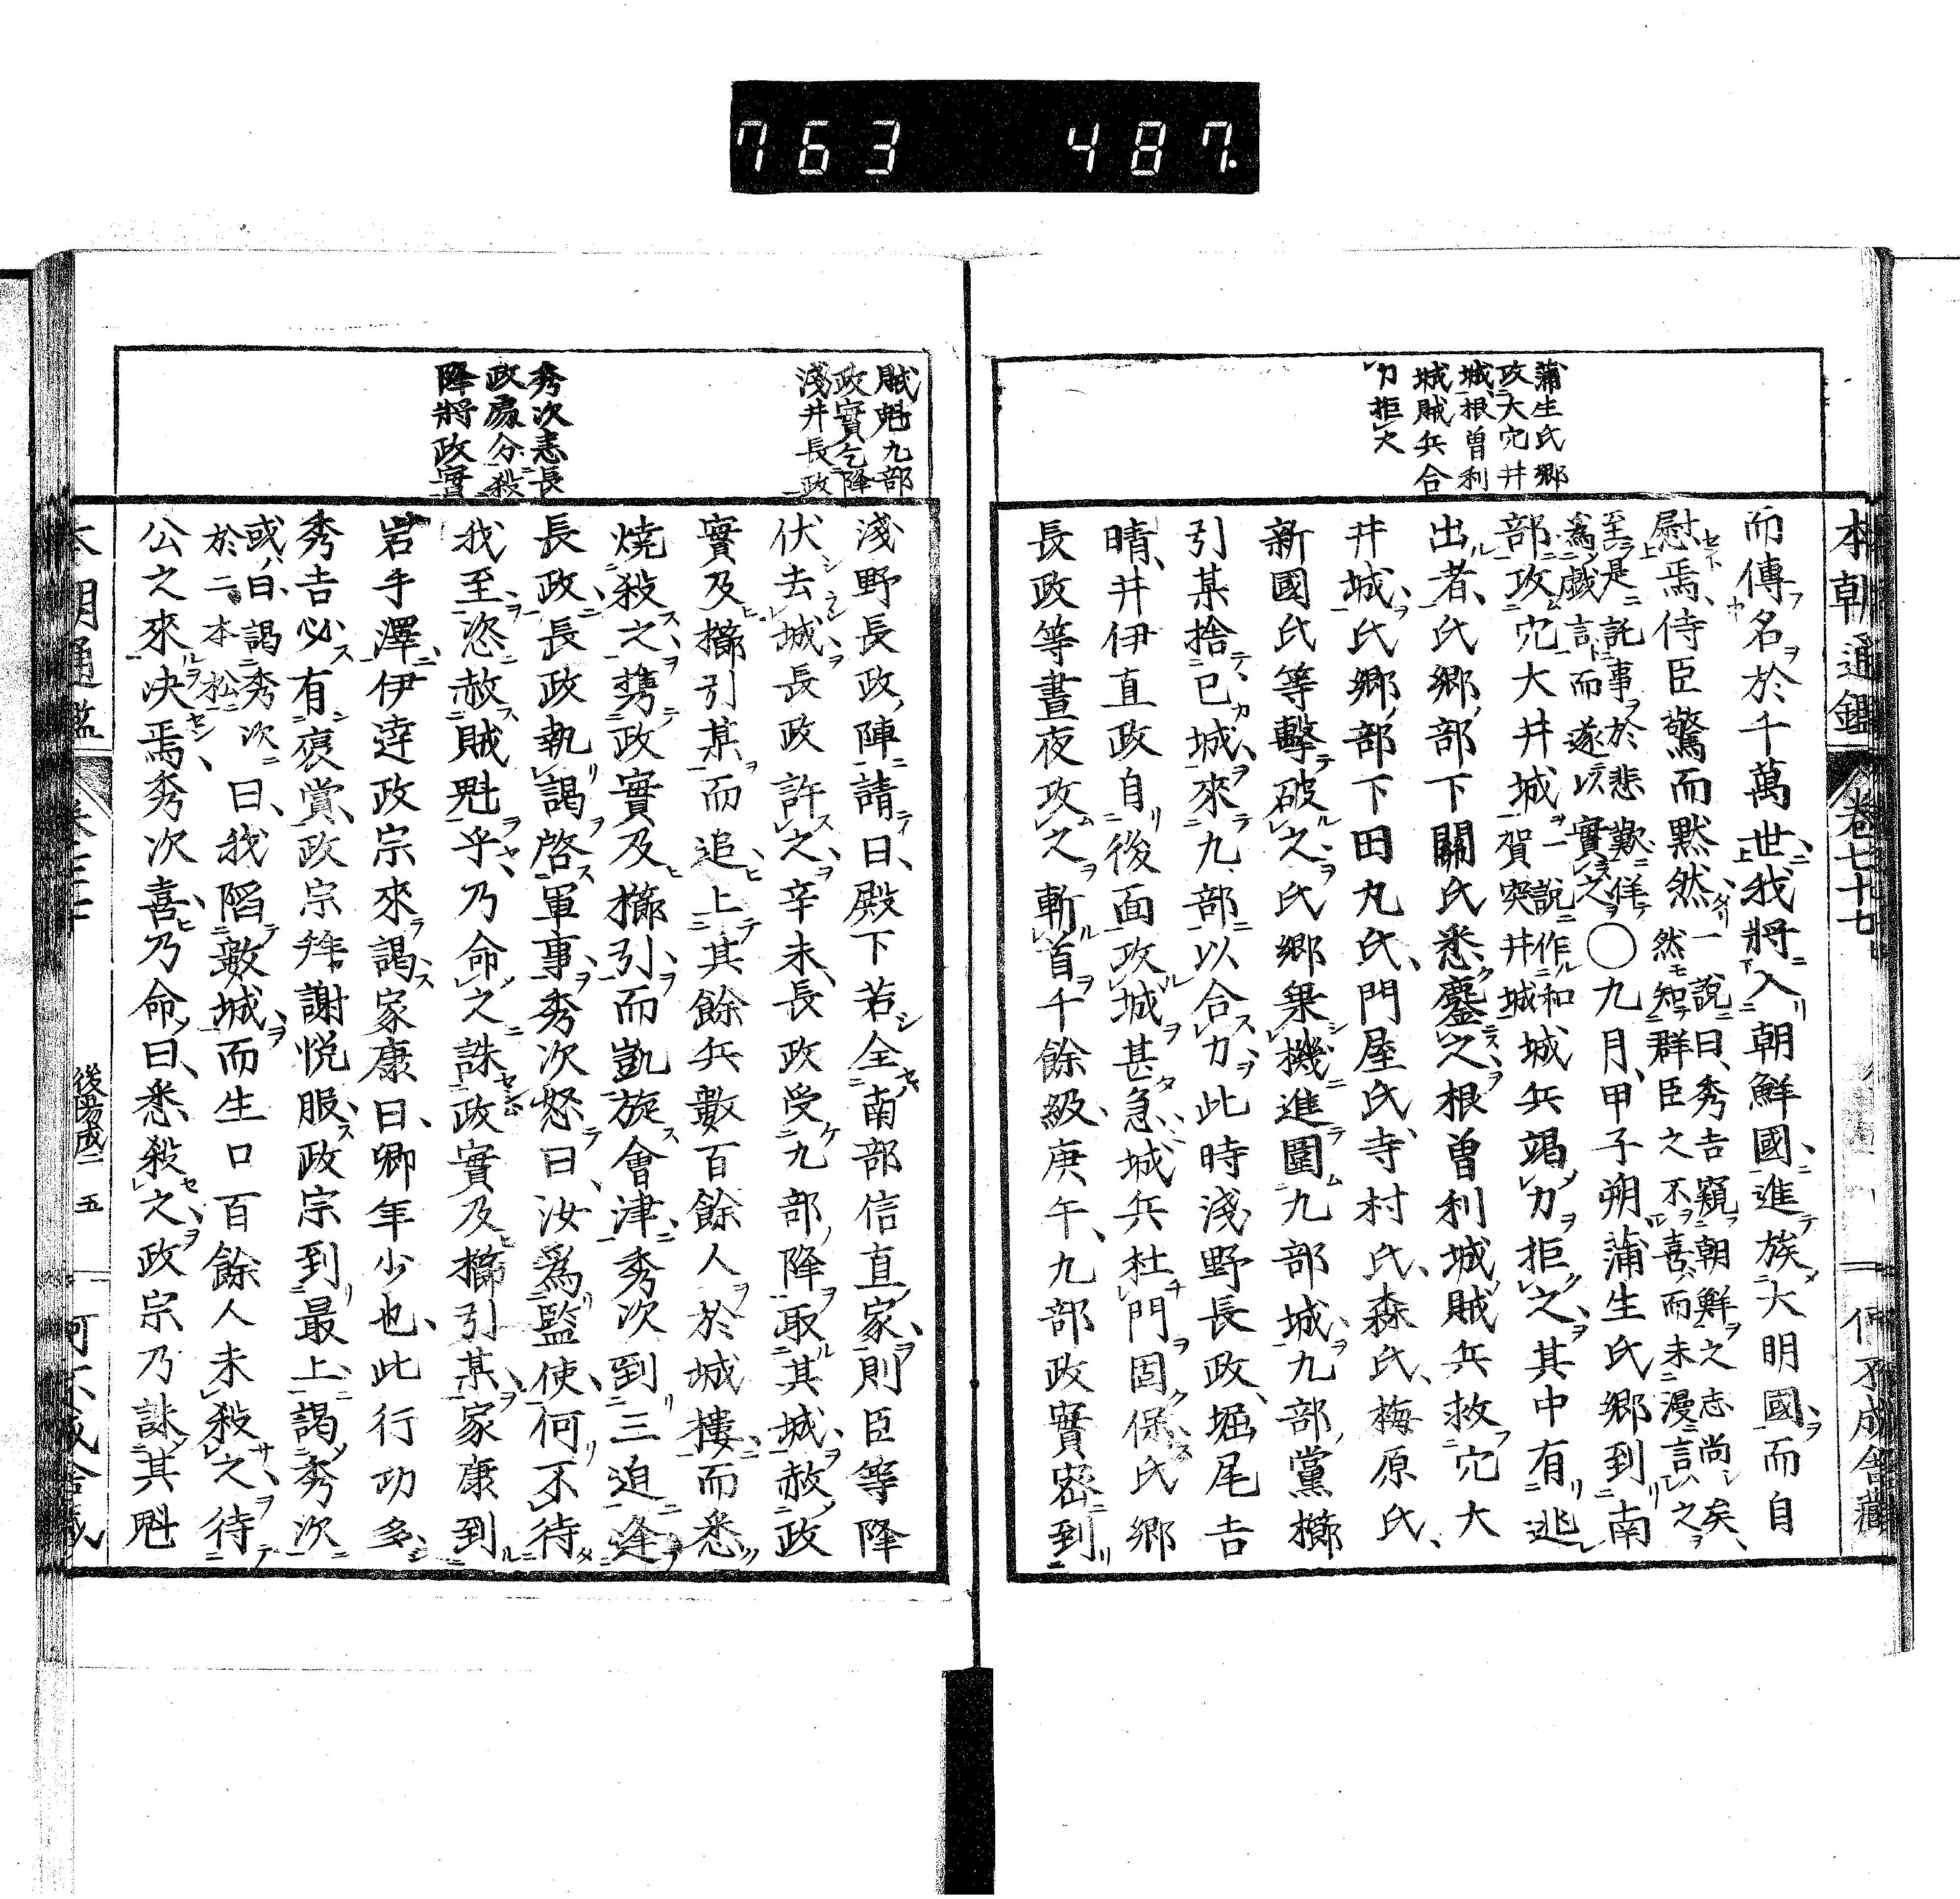 763 487.
本朝通鑑
卷七十七
何不成舍藏
蒲生氏鄉
攻大穴井
城根曽利
城賊兵合
力拒大
而傳名於千萬世我將入朝鮮國進族大明國而自
慰焉侍臣驚而黙然一說曰秀吉窺朝鮮之志尚矣
然知群臣之不喜而未漫言之
至是託事於悲歎佯作
爲戯言而遂以實之〇九月甲子朔蒲生氏鄉到南
部攻穴大井城一說作和賀突井城城兵竭力拒之其中有逃
出者氏鄉部下關氏悉鏖之根曽利城賊兵救穴大
井城氏鄉部下田丸氏門屋氏寺村氏森氏梅原氏
新國氏等擊破之氏鄉乗機進圍九部城九部黨櫛
引某捨已城來九部以合力此時淺野長政堀尾吉
晴井伊直政自後面攻城甚急城兵杜門固保氏鄉
長政等晝夜攻之斬首千餘級庚午九部政實密到
賊魁九部
政實乞降
淺井長政
秀次恚長
政處分殺
降將政實
淺野長政陣請曰殿下若全南部信直家則臣等降
伏去城長政許之辛未長政受九部降取其城赦政
實及櫛引某而追上其餘兵數百餘人於城樓而悉
燒殺之携政實及櫛引而凱旋會津秀次到三迫逢
長政長政執謁啓軍事秀次怒曰汝爲監使何不待
我至恣赦賊魁乎乃命之誅政實及櫛引某家康到
岩手澤伊達政宗來謁家康曰卿年少也此行功多
秀吉必有褒賞政宗拜謝悦服政宗到最上謁秀次
或曰謁秀次於二本松曰我陷數城而生口百餘人未殺之待
公之來决焉秀次喜乃命曰悉殺之政宗乃誅其魁
後陽成二 五